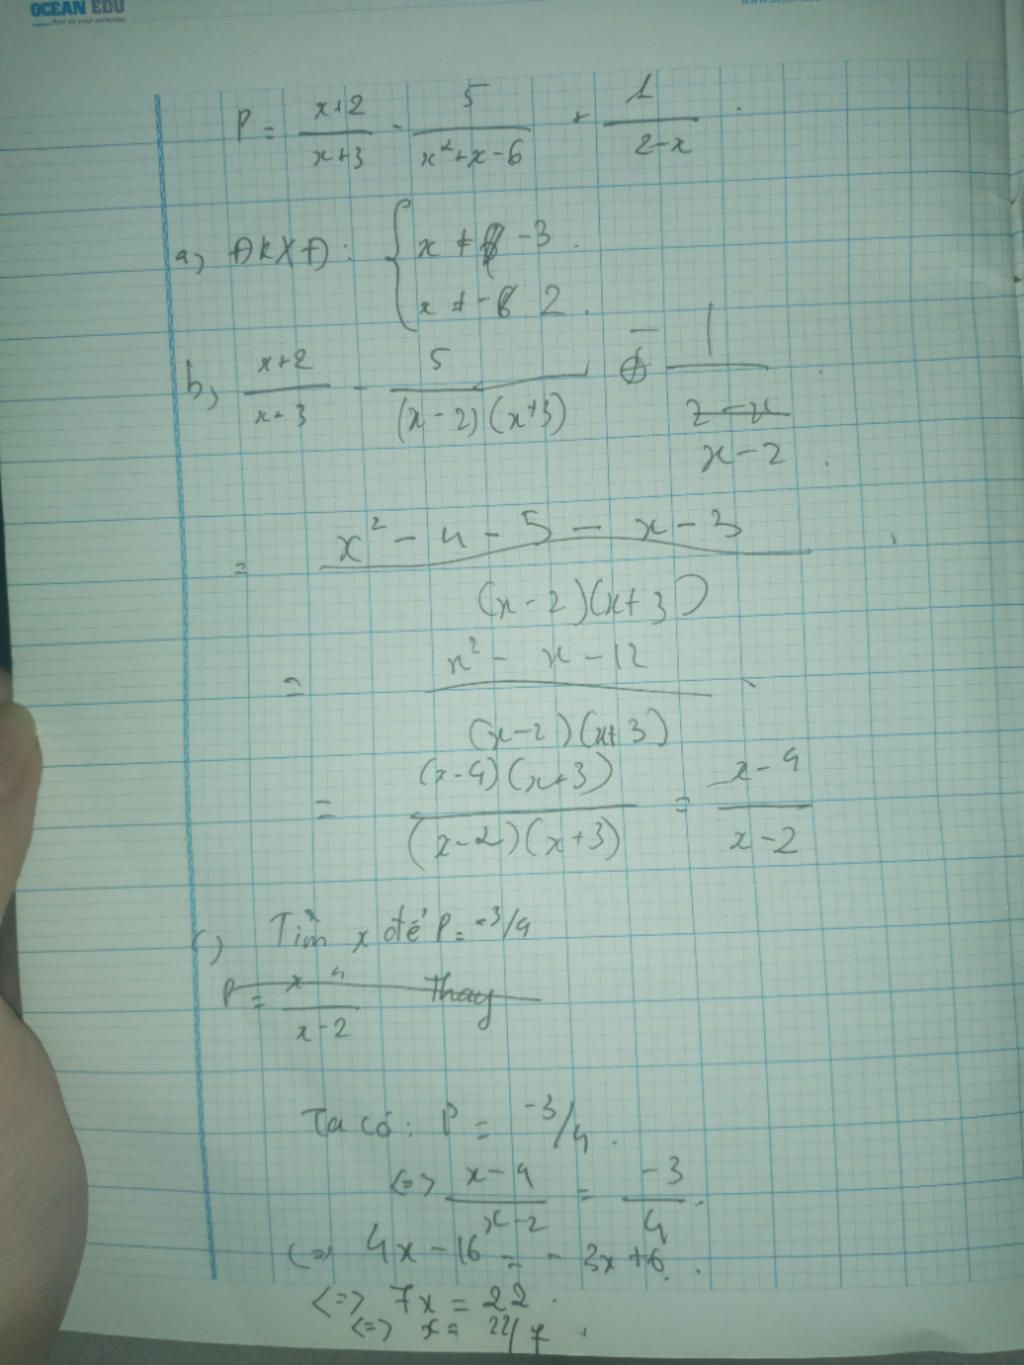 OCEAN EDU
P = (x+2)/(x+3) - 5/(x²+x-6) + 1/(2-x) .
a) ĐKXĐ: { x ≠ -3 .
x ≠ 2 .
b) (x+2)/(x+3) - 5/((x-2)(x+3)) - 1/(x-2) .
= (x² - 4 - 5 - x - 3)/((x-2)(x+3))
= (x² - x - 12)/((x-2)(x+3))
= ((x-4)(x+3))/((x-2)(x+3)) = (x-4)/(x-2)
c) Tìm x để P = -3/4
P = (x 4)/(x-2) Thay
Ta có: P = -3/4 .
<=> (x-4)/(x-2) = -3/4 .
<=> 4x - 16 = - 3x + 6 .
<=> 7x = 22 .
<=> x = 22/7 .